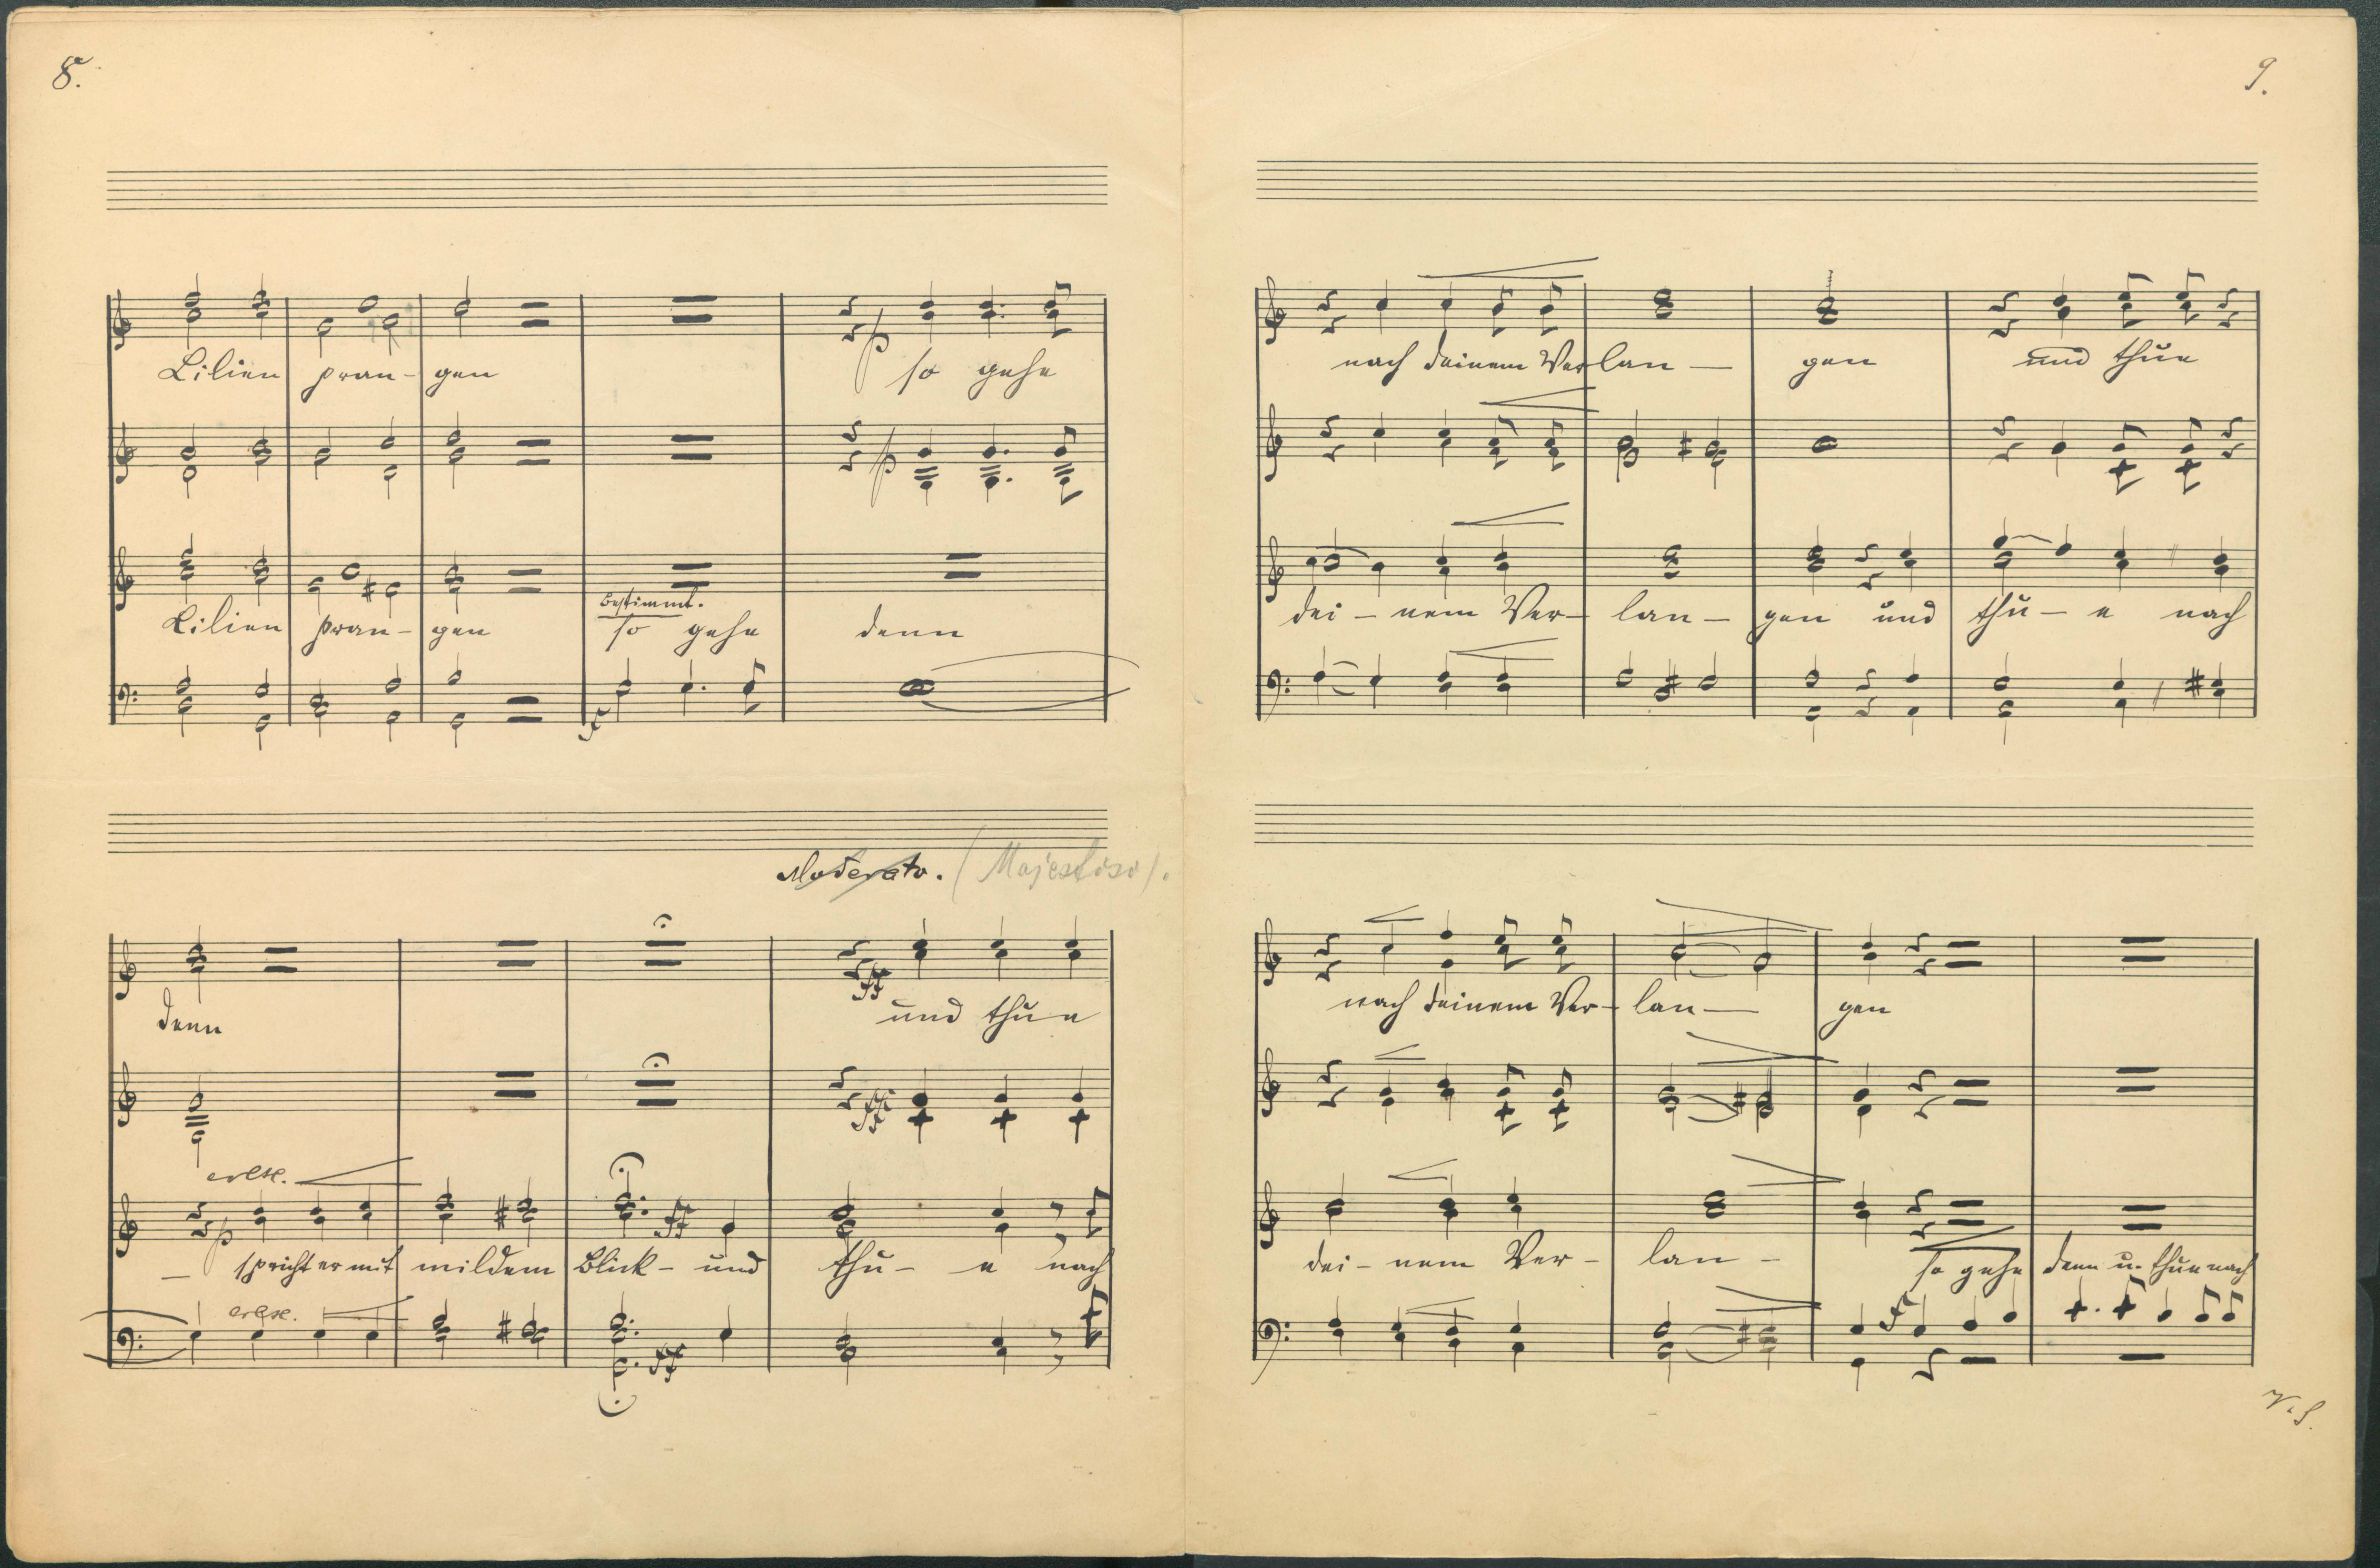 8.
Lilien pran- gen
p so gehe
p
bestimmt.
Lilien pran- gen so gehe denn
f
Moderato. (Majestoso).
denn ff und thue
ff
cresc.
p
- spricht er mit mildem Blick- und thu- e nach
ff
cresc.
ff
9.
nach deinem Verlan- gen und thue
dei- nem Ver- lan- gen und thu- e nach
nach deinem Ver- lan- gen
dei- nem Ver- lan- so gehe denn u. thue nach
f
V. S.